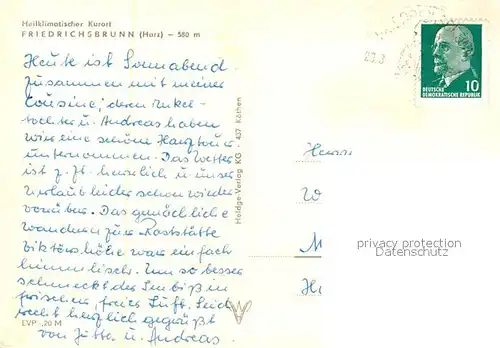 Heilklimatischer Kurort
FRIEDRICHSBRUNN (Harz) – 580 m
Heute ist Sonnabend
zusammen mit meiner
Cousine, deren Enkel-
tochter u. Andreas haben
wir eine schöne Harztour
unternommen. Das Wetter
ist z. Zt. herrlich u. unser
Urlaub leider schon wieder
vorüber. Das gemächliche
wandern zur Raststätte
Viktorshöhe war einfach
himmlisch. Um so besser
schmeckt der Imbiß in
frischer, freier Luft. Seid
recht herzlich gegrüßt
von Jutta u. Andreas.
EVP -,20 M
Heldge-Verlag KG 437 Köthen
DEUTSCHE
DEMOKRATISCHE REPUBLIK
10
Herrn
W
M
H
privacy protection
Datenschutz